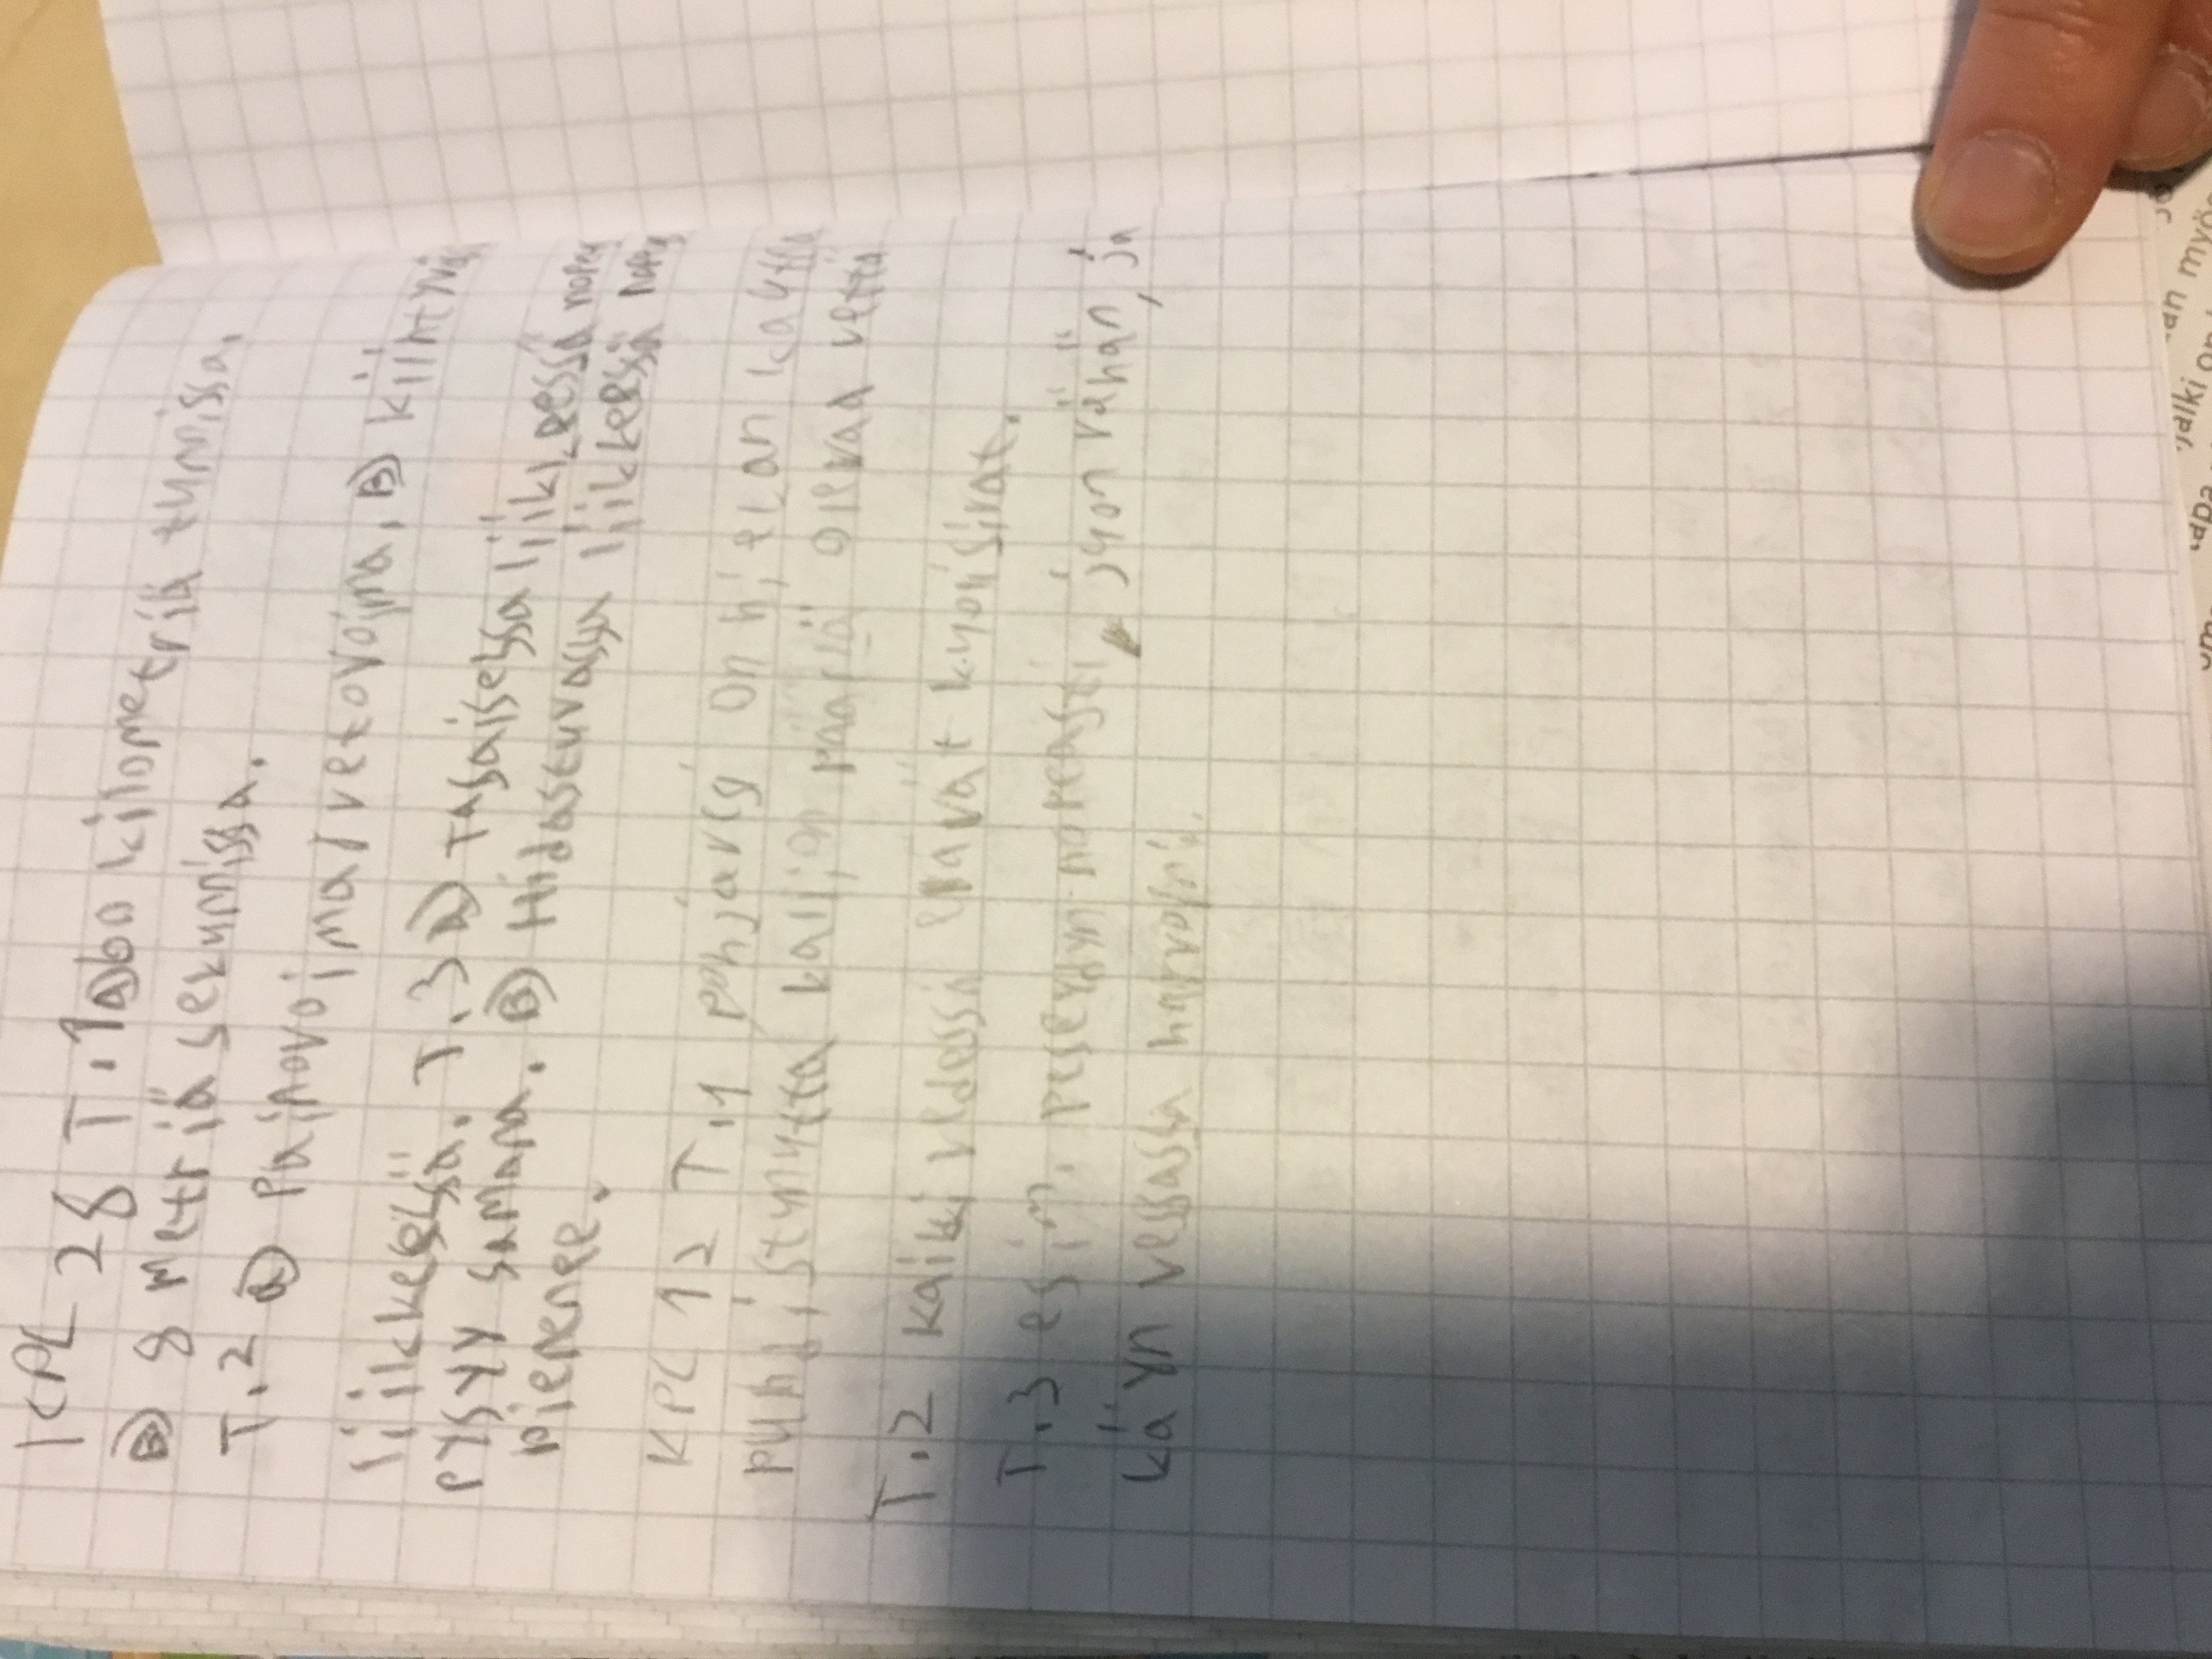 KPL 28 T.1 A) 60 kilometriä tunnissa.
B) 8 metriä sekunnissa.
T.2 A) Painovoima/vetovoima, B) kiihtyvä
liikkeessä. T.3 A) tasaisessa liikkeessä
pysyy samana. B) Hidastuvassa liikkeessä
pienenee.
KPL 12 T.1 pohjavesi On hiekan kautta
puhdistunutta kallion päällä olevaa vettä
T.2 kaikki vedessä elävät kuolisivat.
T.3 esim. peseydyn nopeasti, juon vähän, ja
käyn vessassa harvoin.
an myös
jalki on